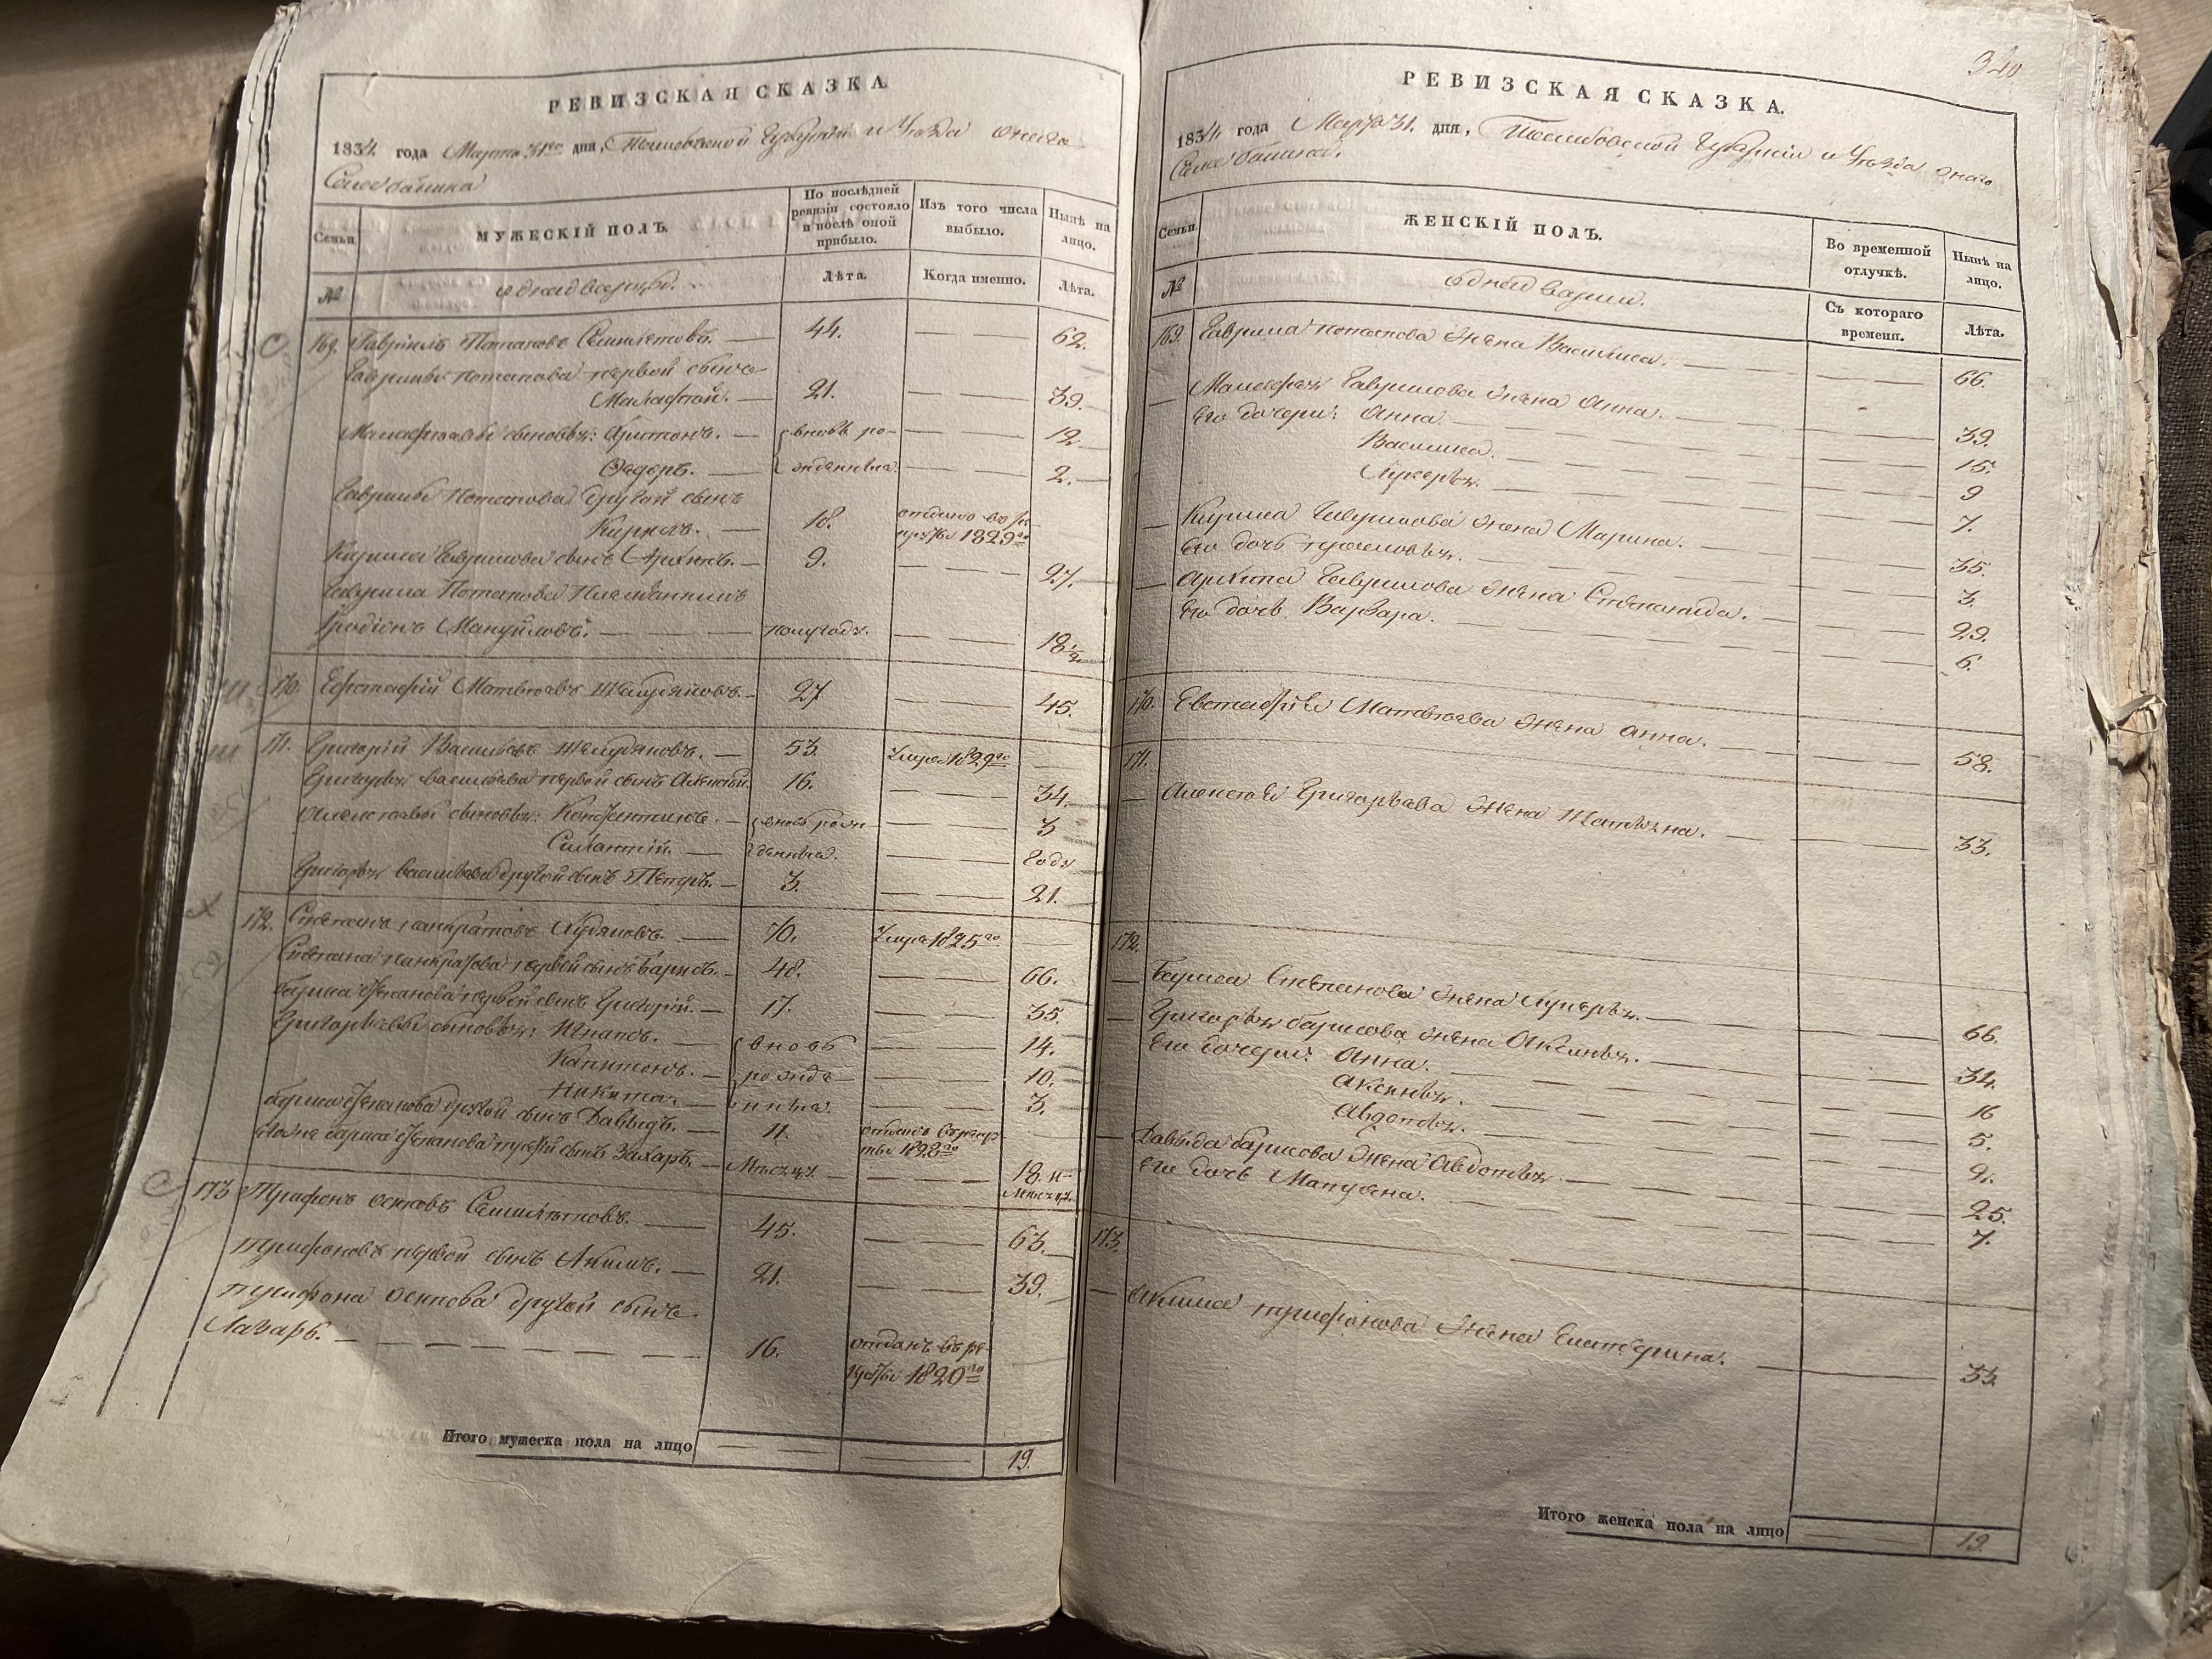 РЕВИЗСКАЯ СКАЗКА
1834. года Марта 31го дня, Тамбовской Губернии и Уезда онаго
Села
Семьи.
МУЖЕСКІЙ ПОЛЪ.
По послѣдней ревизіи состояло и послѣ оной прибыло.
Изъ того числа выбыло.
Нынѣ на лицо.
№
однодворцы.
Лѣта.
Когда именно.
Лѣта.
169. Гаврилъ Потаповъ Семилетовъ. 44. 62.
Гаврилы Потапова первой сынъ
Малафей. 21. 39.
Малафеевы сыновья: Аритонъ. вновь ро- 12
Федоръ. жденныя. 2.
Гаврилы Потапова другой сынъ
Кирилъ. 18. отданъ въ ре-
круты 1829го
Кирила Гаврилова сынъ Архипъ. 9. 27.
Гаврила Потапова племянникъ
Иродіонъ Мануйловъ. полугоду. 18 1/2
170. Евстафій Матвѣевъ Шемдяковъ. 27 45.
171. Григорій Васильевъ 53. Умре 1829го
Григорья Васильева первой сынъ Алексѣй. 16. 34.
Алексѣевы сыновья: вновь рож- 3
Силантій. денныя. Году
Григорья Васильева другой сынъ Петръ. 3. 21.
172. Степанъ Панкратовъ Кудяковъ. 70. Умре 1825го
Степана Панкратова первой сынъ Барисъ. 48. 66.
Бариса Степанова первой сынъ Григорій. 17. 35.
Григорьевы сыновья: Игнатъ. вновь 14.
Капитонъ. рожде 10.
Никита. нныя. 3.
Бариса Степанова другой сынъ Давыдъ. 11. отданъ въ рекру
ты 1828го
Его же Бариса Степанова третій сынъ Захаръ. Месяцъ. 18. и
Месяцъ.
173 Трифонъ Осиповъ Семилѣтковъ. 45. 63.
Трифоновъ первой сынъ Акимъ. 21. 39.
Трифона Осипова другой сынъ
Лазарь. 16. отданъ въ ре-
круты 1820го
Итого мужеска пола на лицо 19.
340
РЕВИЗСКАЯ СКАЗКА.
1834. года Марта 31. дня, Тамбовской Губерніи и Уезда онаго
Села
Семьи.
ЖЕНСКІЙ ПОЛЪ.
Во временной отлучкѣ.
Нынѣ на лицо.
№
однодворки.
Съ котораго времени.
Лѣта.
169. Гаврила Потапова жена Василиса. 66.
Малафея Гаврилова жена Анна. 39.
Его дочери: Анна. 15.
Василиса. 9
Лукерья. 7.
Кирила Гаврилова жена Марина. 35.
Его дочь Прасковья. 3.
Архипа Гаврилова жена Степанида. 29.
Его дочь Варвара. 6.
170. Евстафія Матвѣева жена Анна. 58.
171.
Алексѣя Григорьева жена Татьяна. 33.
172.
Бариса Степанова жена Лукерья. 66.
Григорья Барисова жена Аксинья. 34.
Его дочери: Анна. 16
Аксинья. 5.
Авдотья. 2.
Давыда Барисова жена Авдотья. 25.
Его дочь Матрена. 7.
173.
Акима Трифонова жена Екатерина. 33.
Итого женска пола на лицо 19.